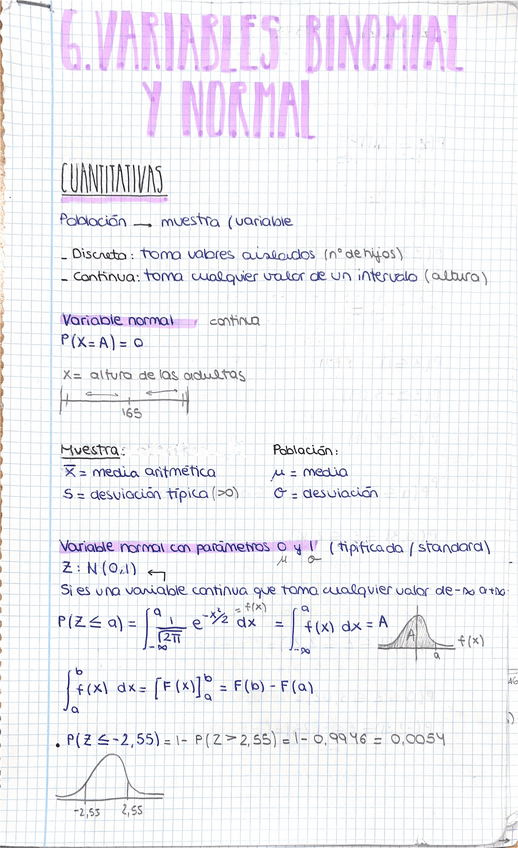 6. VARIABLES BINOMIAL
Y NORMAL
CUANTITATIVAS
Población → muestra (variable
- Discreta: toma valores aislados (nº de hijos)
- Continua: toma cualquier valor de un intervalo (altura)
Variable normal continua
P(X=A) = 0
X= altura de las adultas
165
Muestra: Población:
x̄ = media aritmética μ = media
S = desviación típica (>0) σ = desviación
Variable normal con parámetros 0 y 1 (tipificada / standard)
μ σ
Z : N(0,1) ↩
Si es una variable continua que toma cualquier valor de -∞ a +∞.
P(Z ≤ a) = ∫_{-∞}^{a} 1/√2π e^{-x²/2} dx = ∫_{-∞}^{a} f(x) dx = A
= f(x)
A a f(x)
∫_{a}^{b} f(x) dx = [F(x)]_{a}^{b} = F(b) - F(a)
. P(Z ≤ -2,55) = 1 - P(Z > 2,55) = 1 - 0,9946 = 0,0054
-2,55 2,55